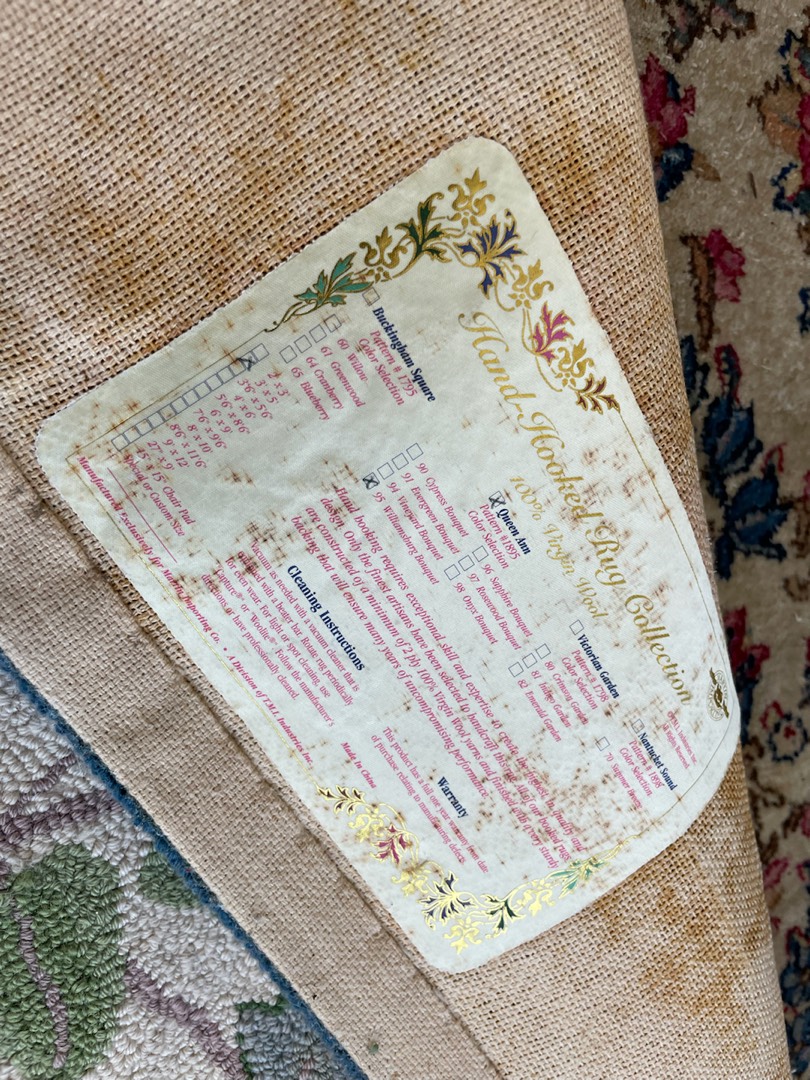 Hand-Hooked Rug Collection
100% Virgin Wool
Buckingham Square
Pattern # 1795
Color Selection
60 Willow
61 Greenwood
64 Cranberry
65 Blueberry
Queen Ann
Pattern #1895
Color Selection
90 Cypress Bouquet
91 Evergreen Bouquet
94 Vineyard Bouquet
95 Williamsburg Bouquet
96 Sapphire Bouquet
97 Rosewood Bouquet
98 Onyx Bouquet
Victorian Garden
Pattern # 1798
Color Selection
80 Crimson Garden
81 Indigo Garden
82 Emerald Garden
Nantucket Sound
Pattern # 1898
Color Selection
70 Summer
2' x 3'
3' x 5'
3'6" x 5'6"
4' x 6'
5'6" x 8'6"
6' x 9'
7'6" x 9'6"
8' x 10'
8'6" x 11'6"
9' x 12'
27" x 9'
15" x 15" Chair Pad
Special or Custom Size
Hand hooking requires exceptional skill and expertise to create the highest in quality and
design. Only the finest artisans have been selected to handcraft this rug. All of our hooked rugs
are constructed of a minimum of 2 ply 100% Virgin Wool yarns and finished with a very sturdy
backing that will ensure many years of uncompromising performance.
Cleaning Instructions
Vacuum as needed with a vacuum cleaner that is
equipped with a beater bar. Rotate rug periodically
for even wear. For light or spot cleaning, use
Capture® or Woolite®. Follow the manufacturer's
directions or have professionally cleaned.
Warranty
This product has a full one year warranty from date
of purchase relating to manufacturing defects.
Manufactured Exclusively for Importing Co. • A Division of T.M.I. Industries Inc.
Made in China